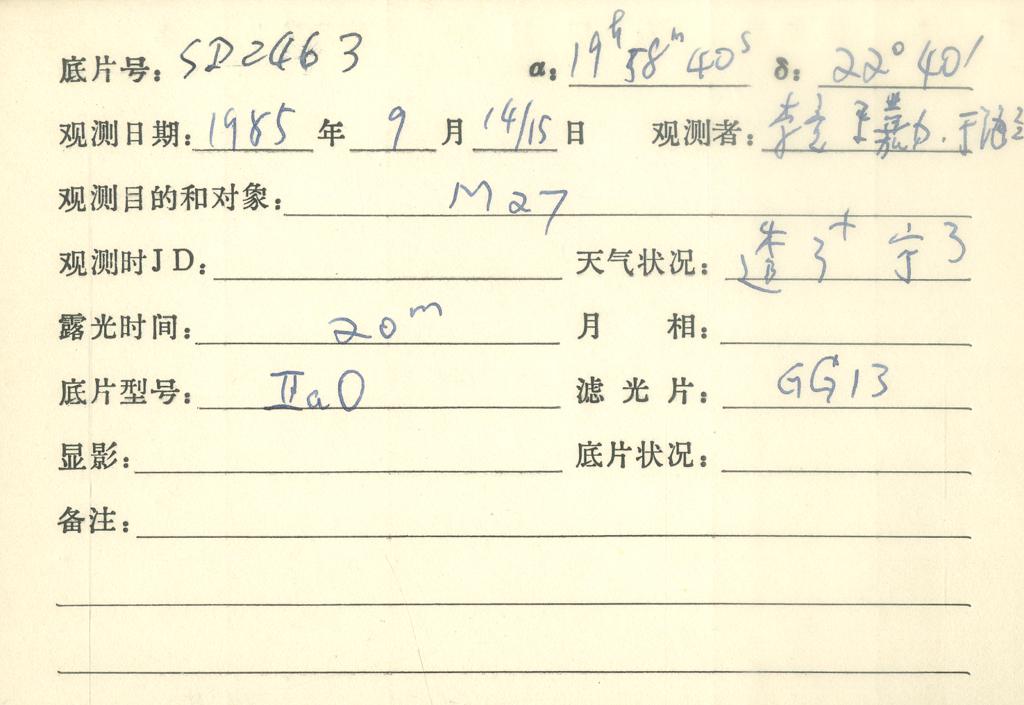 底片号: SD2463 α: 19h 58m 40s δ: 22° 40′
观测日期: 1985 年 9 月 14/15 日 观测者: 李竞
观测目的和对象: M27
观测时JD: 天气状况: 透3+ 宁3
露光时间: 20m 月相:
底片型号: IIaO 滤光片: GG13
显影: 底片状况:
备注: